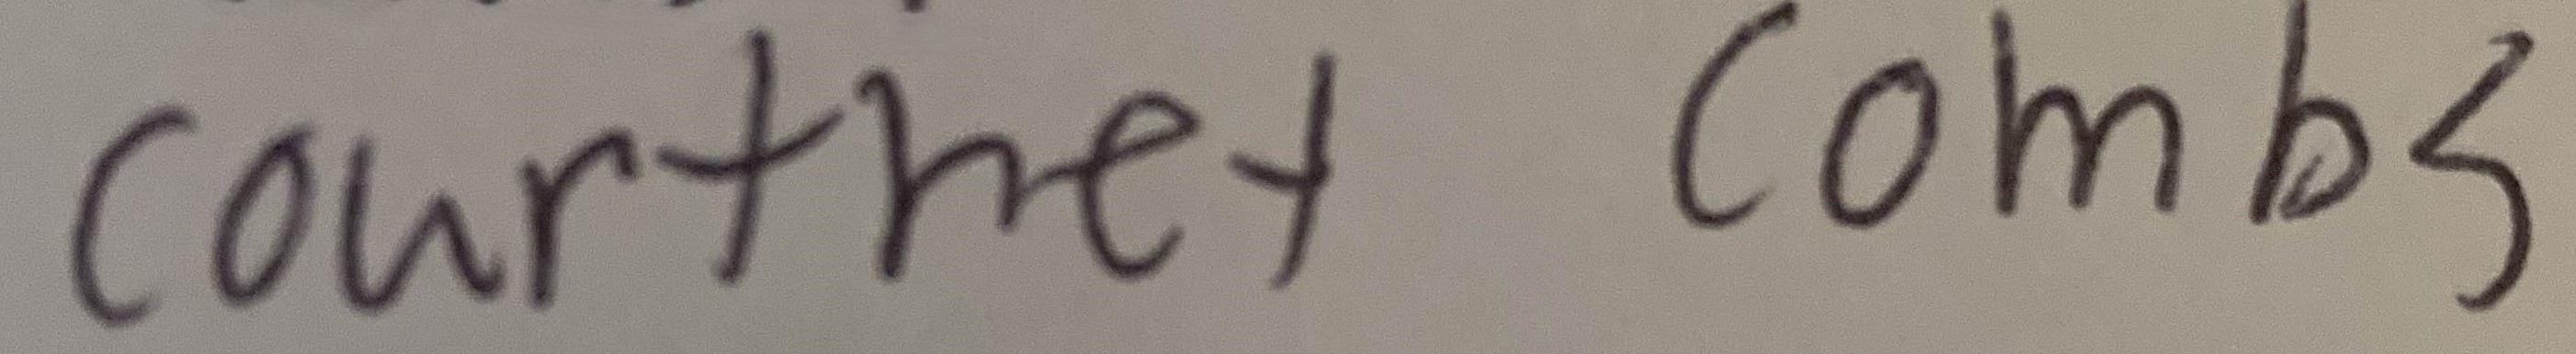 Courtney Combs